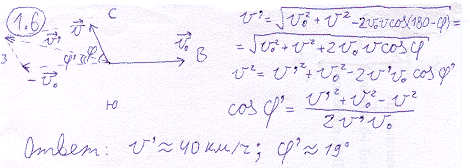 1.6
С
v⃗
v⃗'
v⃗₀
φ'
φ
В
З
-v⃗₀
Ю
v' = √(v₀² + v² - 2v₀v cos(180-φ)) =
= √(v₀² + v² + 2v₀v cos φ)
v² = v'² + v₀² - 2v'v₀ cos φ'
cos φ' = (v'² + v₀² - v²) / (2v'v₀)
Ответ: v' ≈ 40 км/г; φ' ≈ 19°